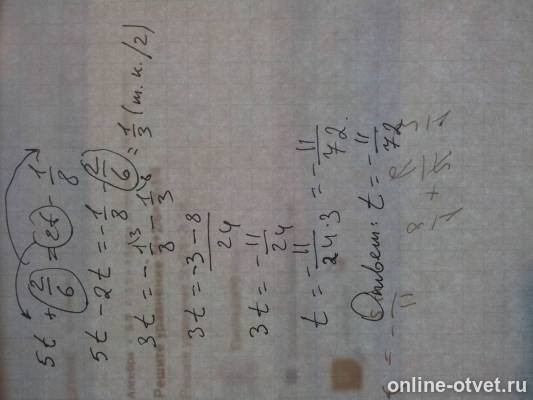 5t + 2/6 = 2t - 1/8
5t - 2t = -1/8 - 2/6 = 1/3 (т.к. /2)
3t = -1/8 - 1/3
3t = -3-8/24
3t = -11/24
t = -11/24·3 = -11/72.
Ответ: t = -11/72
online-otvet.ru